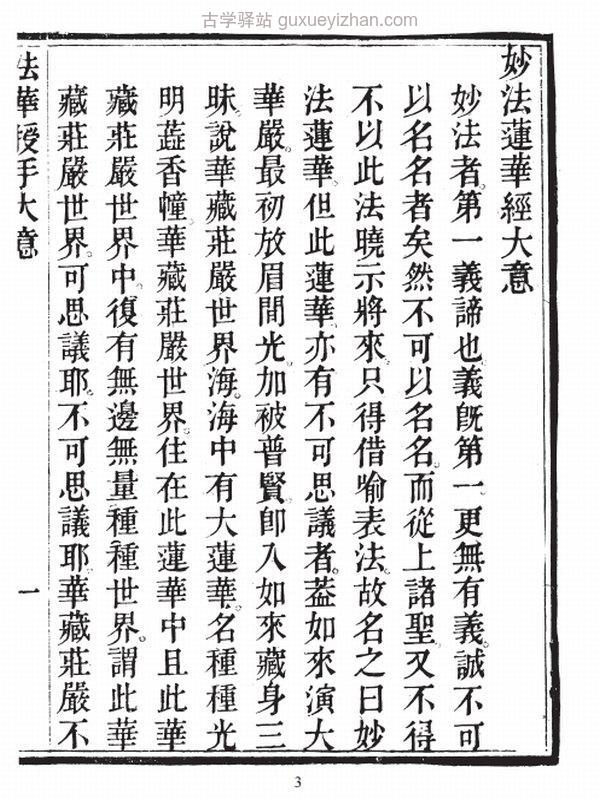 古学驿站 guxueyizhan.com
妙法蓮華經大意
妙法者。第一義諦也。義旣第一。更無有義。誠不可
以名名者矣。然不可以名名。而從上諸聖。又不得
不以此法曉示將來。只得借喻表法。故名之曰妙
法蓮華。但此蓮華。亦有不可思議者。葢如來演大
華嚴。最初放眉間光。加被普賢。卽入如來藏身三
昧。說華藏莊嚴世界海。海中有大蓮華。名種種光
明蕋香幢。華藏莊嚴世界。住在此蓮華中。且此華
藏莊嚴世界中。復有無邊無量種種世界。謂此華
藏莊嚴世界。可思議耶。不可思議耶。華藏莊嚴不
法華授手大意
一
3